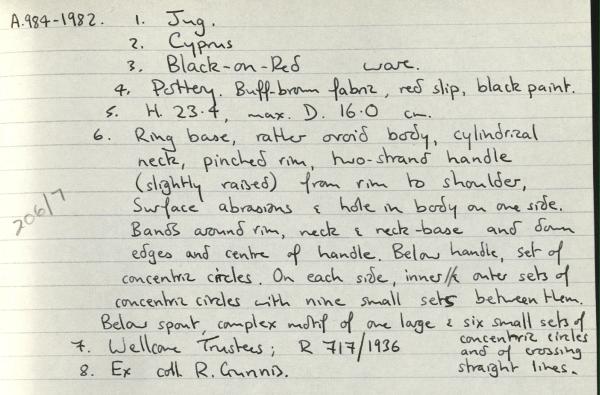 A.984-1982. 1. Jug.
2. Cyprus
3. Black-on-Red ware.
4. Pottery. Buff-brown fabric, red slip, black paint.
5. H. 23.4, max. D. 16.0 cm.
6. Ring base, rather ovoid body, cylindrical
neck, pinched rim, two-strand handle
(slightly raised) from rim to shoulder,
Surface abrasions & hole in body on one side.
206/7
Bands around rim, neck & neck-base and down
edges and centre of handle. Below handle, set of
concentric circles. On each side, inner & outer sets of
concentric circles with nine small sets between them.
Below spout, complex motif of one large & six small sets of
concentric circles
and of crossing
straight lines.
7. Wellcome Trustees; R 717/1936
8. Ex coll. R. Gunnis.